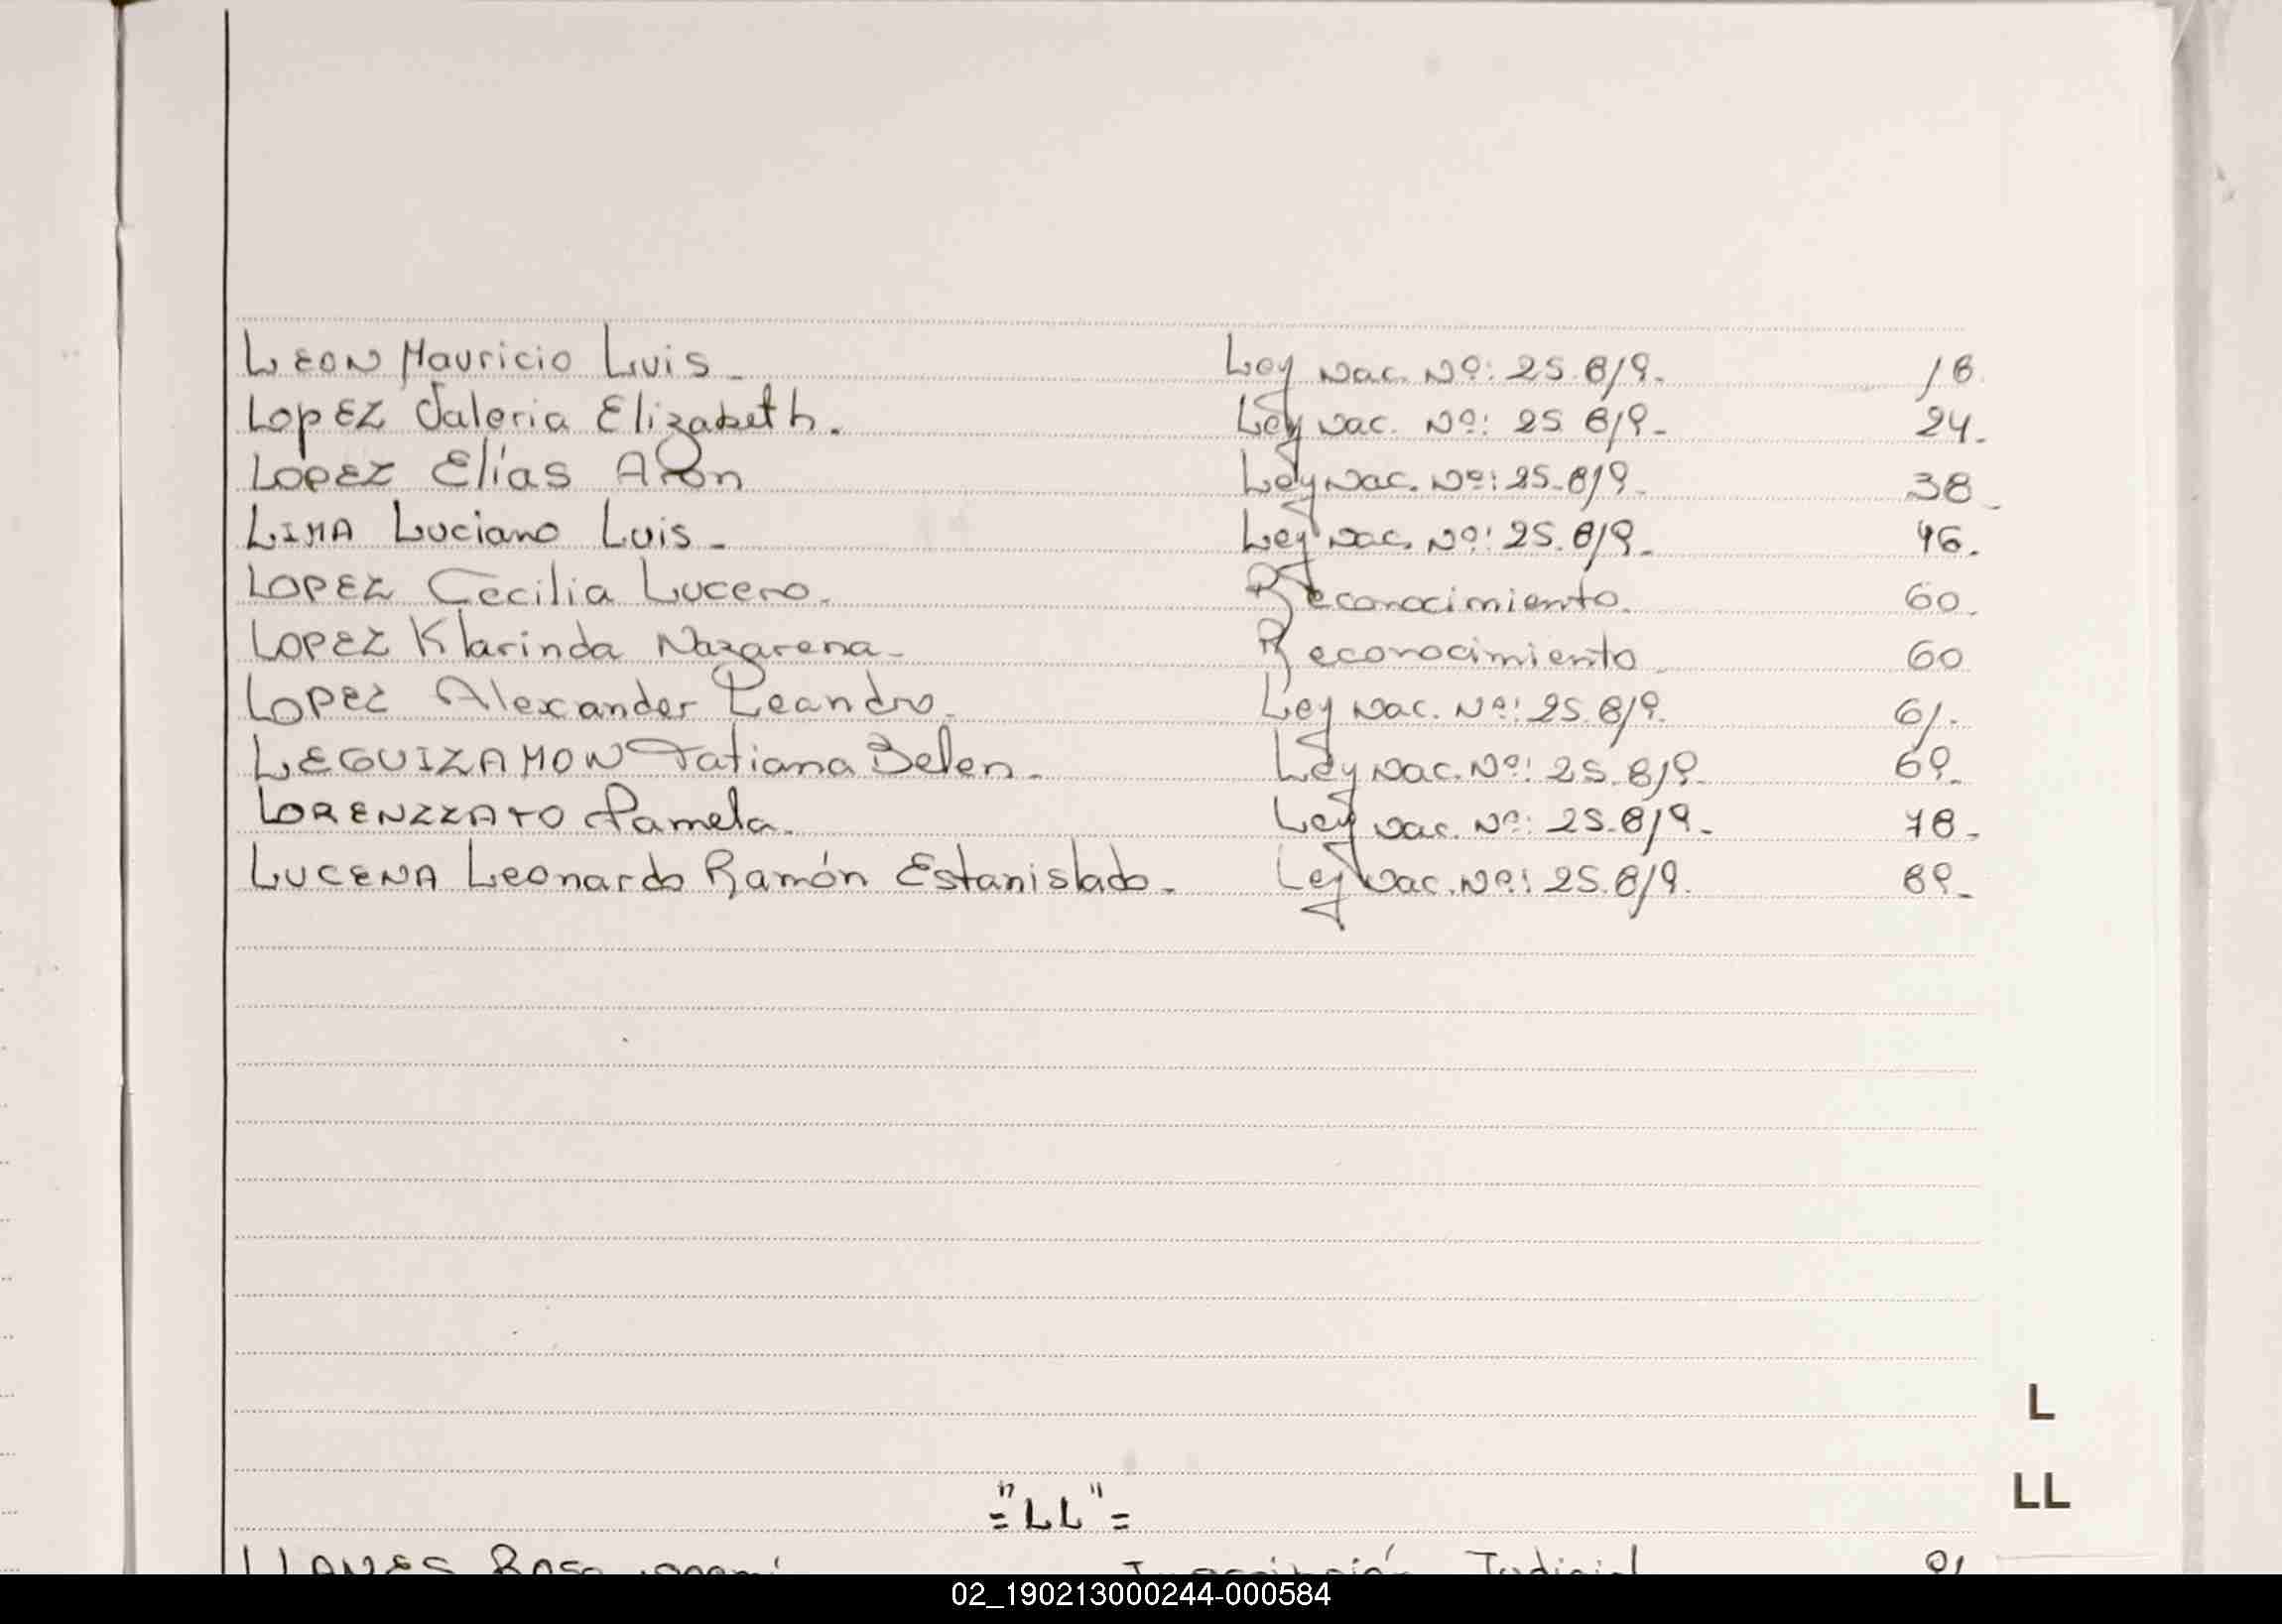 LEON Mauricio Luis - Ley Nac. Nº: 25.819. 18.
LOPEZ Valeria Elizabeth. Ley Nac. Nº: 25 819- 24.
LOPEZ Elías Aron Ley Nac. Nº: 25.819. 38-
LIMA Luciano Luis - Ley Nac. Nº: 25.819. 46.
LOPEZ Cecilia Lucero. Reconocimiento. 60.
LOPEZ Klarinda Nazarena- Reconocimiento. 60
LOPEZ Alexander Leandro. Ley Nac. Nº: 25.819. 61.
LEGUIZAMON Tatiana Belen. Ley Nac. Nº: 25.819. 69.
LORENZZATO Pamela. Ley Nac. Nº: 25.819. 78-
LUCENA Leonardo Ramón Estanislado. Ley Nac. Nº: 25.819. 89-
L
LL
="LL"=
LLANES Rosa Inscripción Judicial
02_190213000244-000584